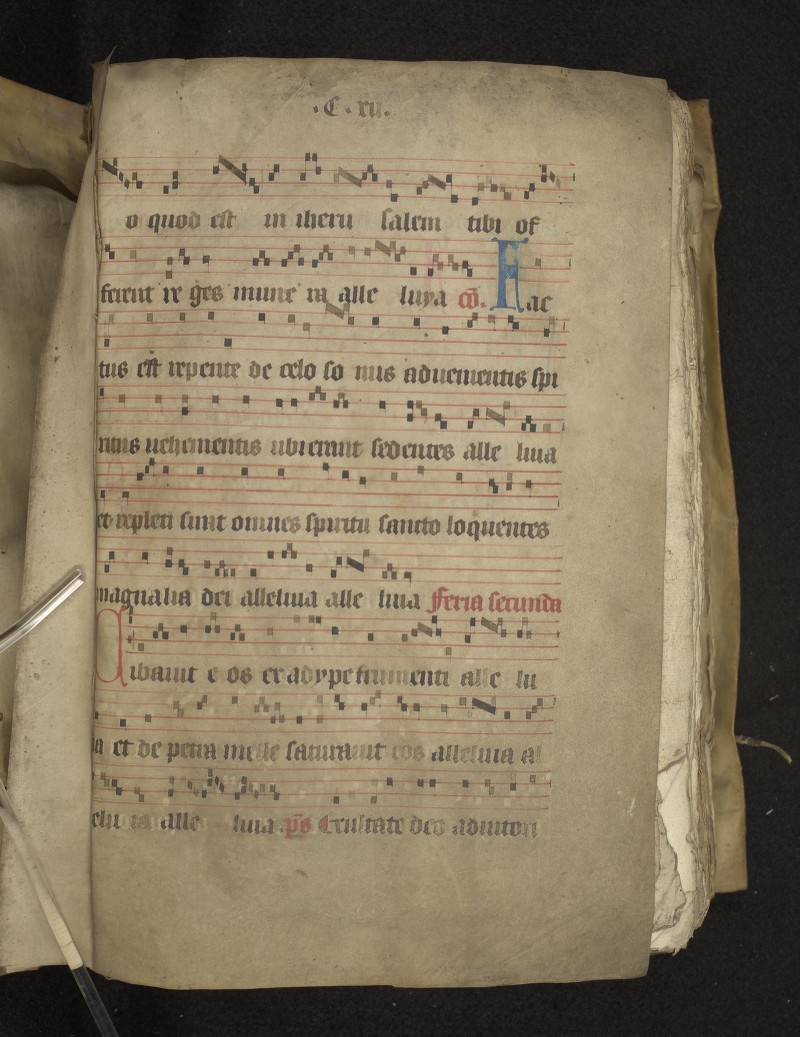 .C.xii.
o quod est in iheru salem tibi of
ferent re ges mune ra alle luya cō. Fac
tus est repente de celo so nus aduenientis spi
ritus uehementis ubi erant sedentes alle luia
et repleti sunt omnes spiritu sancto loquentes
magnalia dei alleluia alle luia Feria secunda
Cibauit e os ex adype frumenti alle lu
ia et de petra melle saturauit eos alleluia al
elu ia alle luia ps Exultate deo adiutori